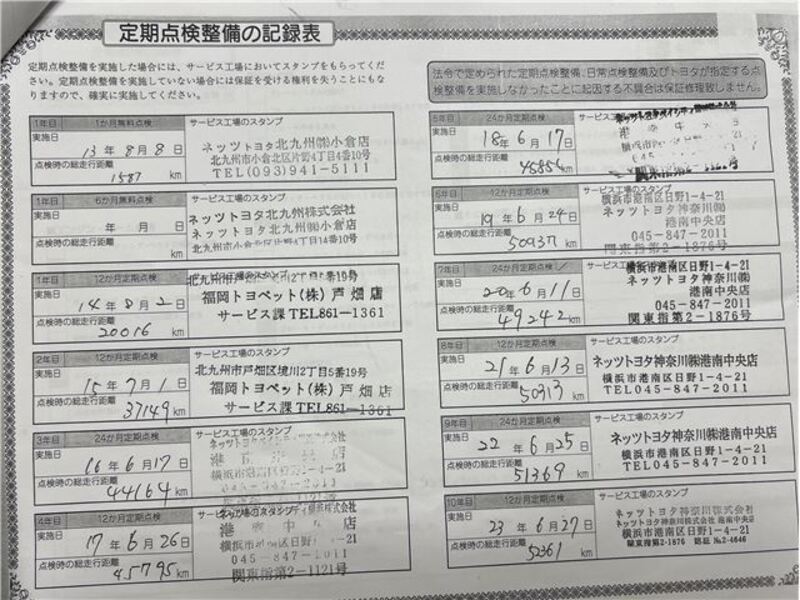 定期点検整備の記録表
定期点検整備を実施した場合には、サービス工場においてスタンプをもらってくだ
さい。定期点検整備を実施していない場合には保証を受ける権利を失うことにもな
りますので、確実に実施してください。
1年目 1か月無料点検 サービス工場のスタンプ
実施日
13年8月8日
点検時の総走行距離
1587 km
ネッツトヨタ北九州㈱小倉店
北九州市小倉北区片野4丁目4番10号
TEL(093)941-5111
1年目 6か月無料点検 サービス工場のスタンプ
実施日
年 月 日
点検時の総走行距離
km
ネッツトヨタ北九州株式会社
ネッツトヨタ北九州㈱小倉店
北九州市小倉北区片野4丁目4番10号
1年目 12か月定期点検
実施日
14年8月2日
点検時の総走行距離
20016 km
2丁目5番19号
福岡トヨペット(株)戸畑店
サービス課TEL861-1361
2年目 12か月定期点検 サービス工場のスタンプ
実施日
15年7月1日
点検時の総走行距離
37149 km
北九州市戸畑区境川2丁目5番19号
福岡トヨペット(株)戸畑店
サービス課TEL861-1361
3年目 24か月定期点検 サービス工場のスタンプ
実施日
16年6月17日
点検時の総走行距離
44164 km
横浜市港南区日野1-4-21
4年目 12か月定期点検 サービス工場のスタンプ
実施日
17年6月26日
点検時の総走行距離
45795 km
港南中央店
045-847-2011
関東指第2-1121号
法令で定められた定期点検整備、日常点検整備及びトヨタが指定する点
検整備を実施しなかったことに起因する不具合は保証修理致しません。
5年目 24か月定期点検 サービス工場のスタンプ
実施日
18年6月17日
点検時の総走行距離
48854 km
6年目 12か月定期点検 サービス工場のスタンプ
実施日
19年6月24日
点検時の総走行距離
50937 km
横浜市港南区日野1-4-21
ネッツトヨタ神奈川㈱
港南中央店
045-847-2011
関東指第2-1876号
7年目 24か月定期点検 サービス工場のスタンプ
実施日
20年6月11日
点検時の総走行距離
49242 km
横浜市港南区日野1-4-21
ネッツトヨタ神奈川㈱
港南中央店
045-847-2011
関東指第2-1876号
8年目 12か月定期点検 サービス工場のスタンプ
実施日
21年6月13日
点検時の総走行距離
50313 km
ネッツトヨタ神奈川㈱港南中央店
横浜市港南区日野1-4-21
TEL045-847-2011
9年目 24か月定期点検 サービス工場のスタンプ
実施日
22年6月25日
点検時の総走行距離
51369 km
ネッツトヨタ神奈川㈱港南中央店
横浜市港南区日野1-4-21
TEL045-847-2011
10年目 12か月定期点検 サービス工場のスタンプ
実施日
23年6月27日
点検時の総走行距離
52361 km
ネッツトヨタ神奈川株式会社
ネッツトヨタ神奈川株式会社 港南中央店
横浜市港南区日野1-4-21
関東指第2-1876 認証 №2-4646